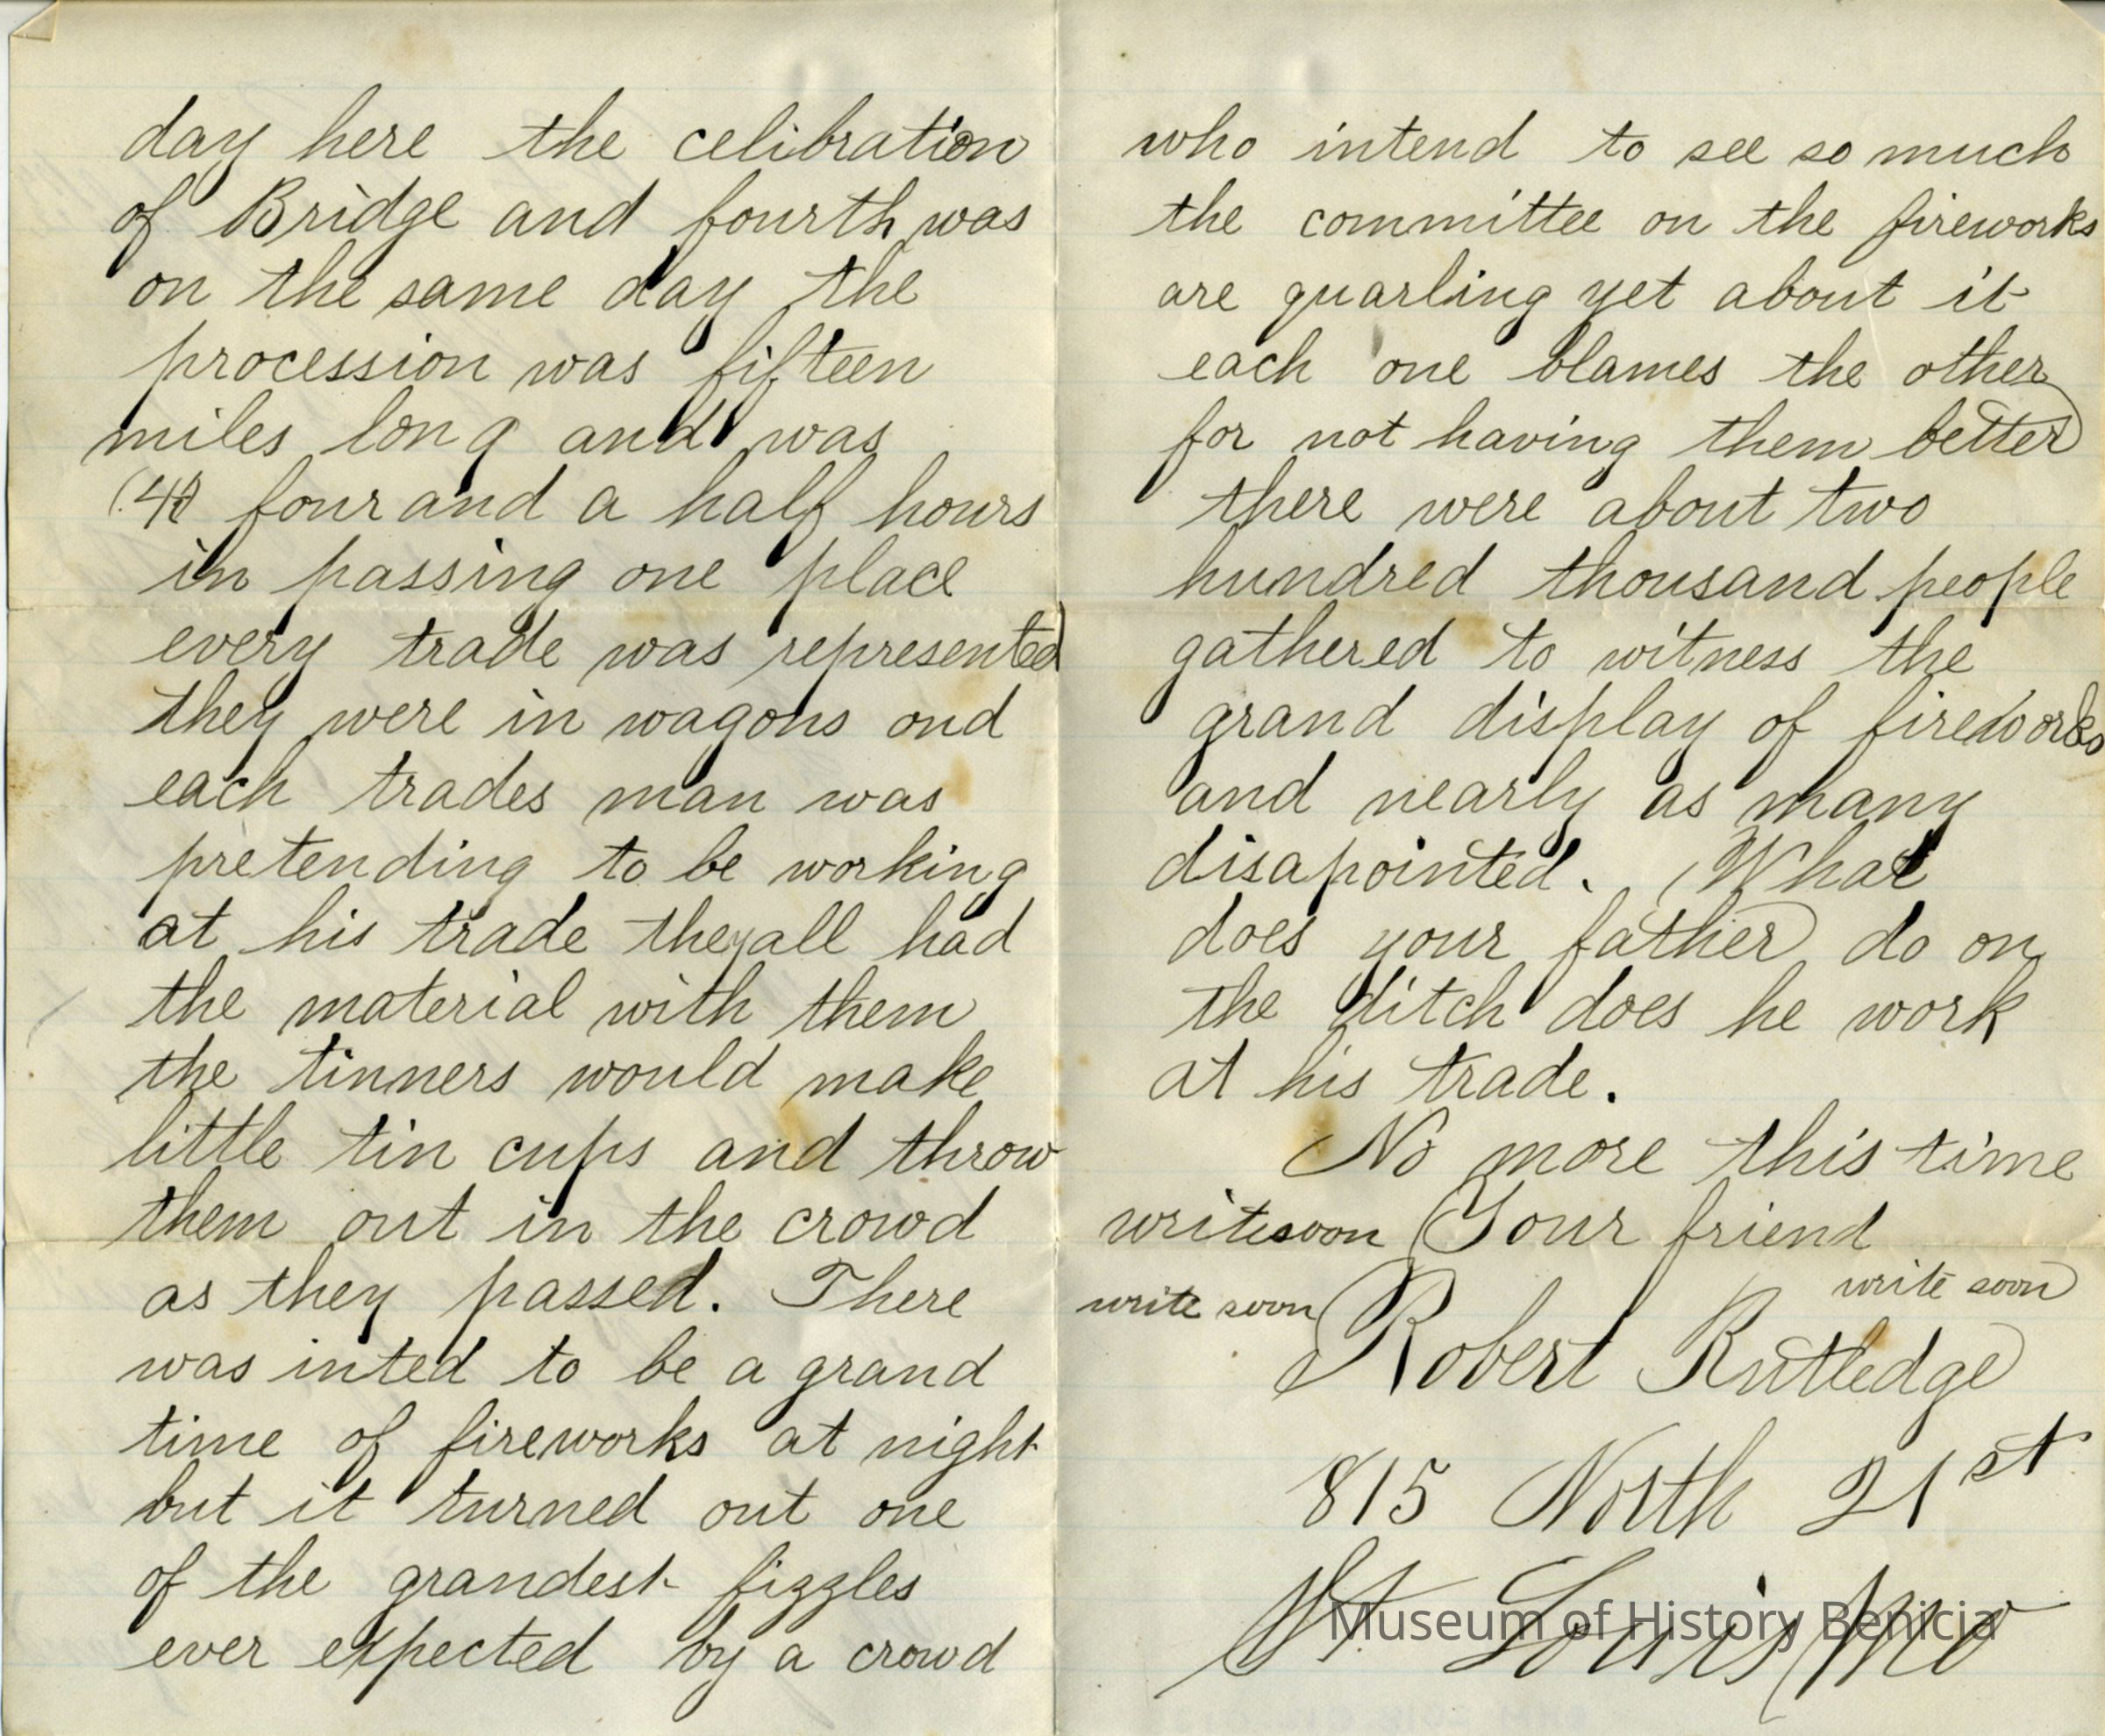 day here the celibration
of Bridge and fourth was
on the same day the
procession was fifteen
miles long and was
(4) four and a half hours
in passing one place
every trade was represented
they were in wagons and
each trades man was
pretending to be working
at his trade they all had
the material with them
the tinners would make
little tin cups and throw
them out in the crowd
as they passed. There
was inted to be a grand
time of fireworks at night
but it turned out one
of the grandest fizzles
ever expected by a crowd
who intend to see so much
the committee on the fireworks
are quarling yet about it
each one blames the other
for not having them better
there were about two
hundred thousand people
gathered to witness the
grand display of fireworks
and nearly as many
disapointed. What
does your father do on
the ditch does he work
at his trade.
No more this time
write soon Your friend
write soon
write soon
Robert Rutledge
815 North 21st
St Louis Mo
Museum of History Benicia